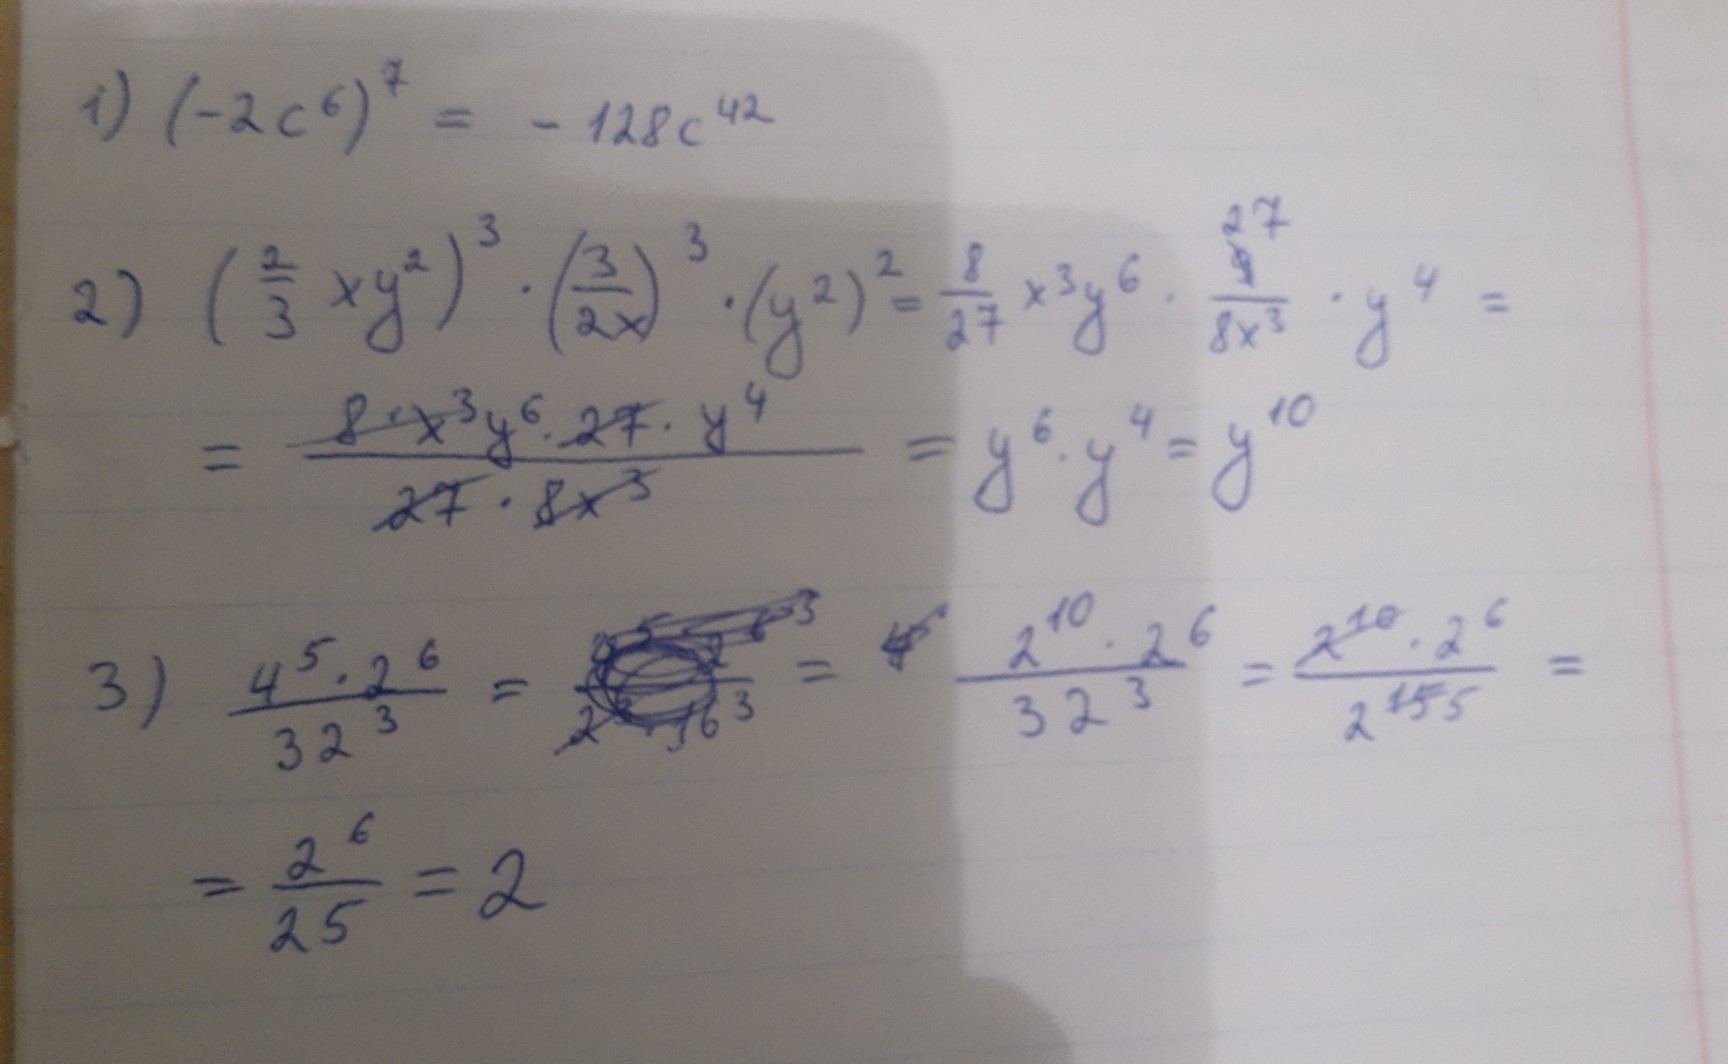 1) (-2c⁶)⁷ = -128c⁴²
2) (2/3 xy²)³ · (3/2x)³ · (y²)² = 8/27 x³y⁶ · 27/8x³ · y⁴ =
= 8·x³y⁶·27·y⁴ / 27·8x³ = y⁶·y⁴ = y¹⁰
3) 4⁵·2⁶ / 32³ = = 2¹⁰·2⁶ / 32³ = 2¹⁰·2⁶ / 2¹⁵ ⁵ =
= 2⁶ / 25 = 2